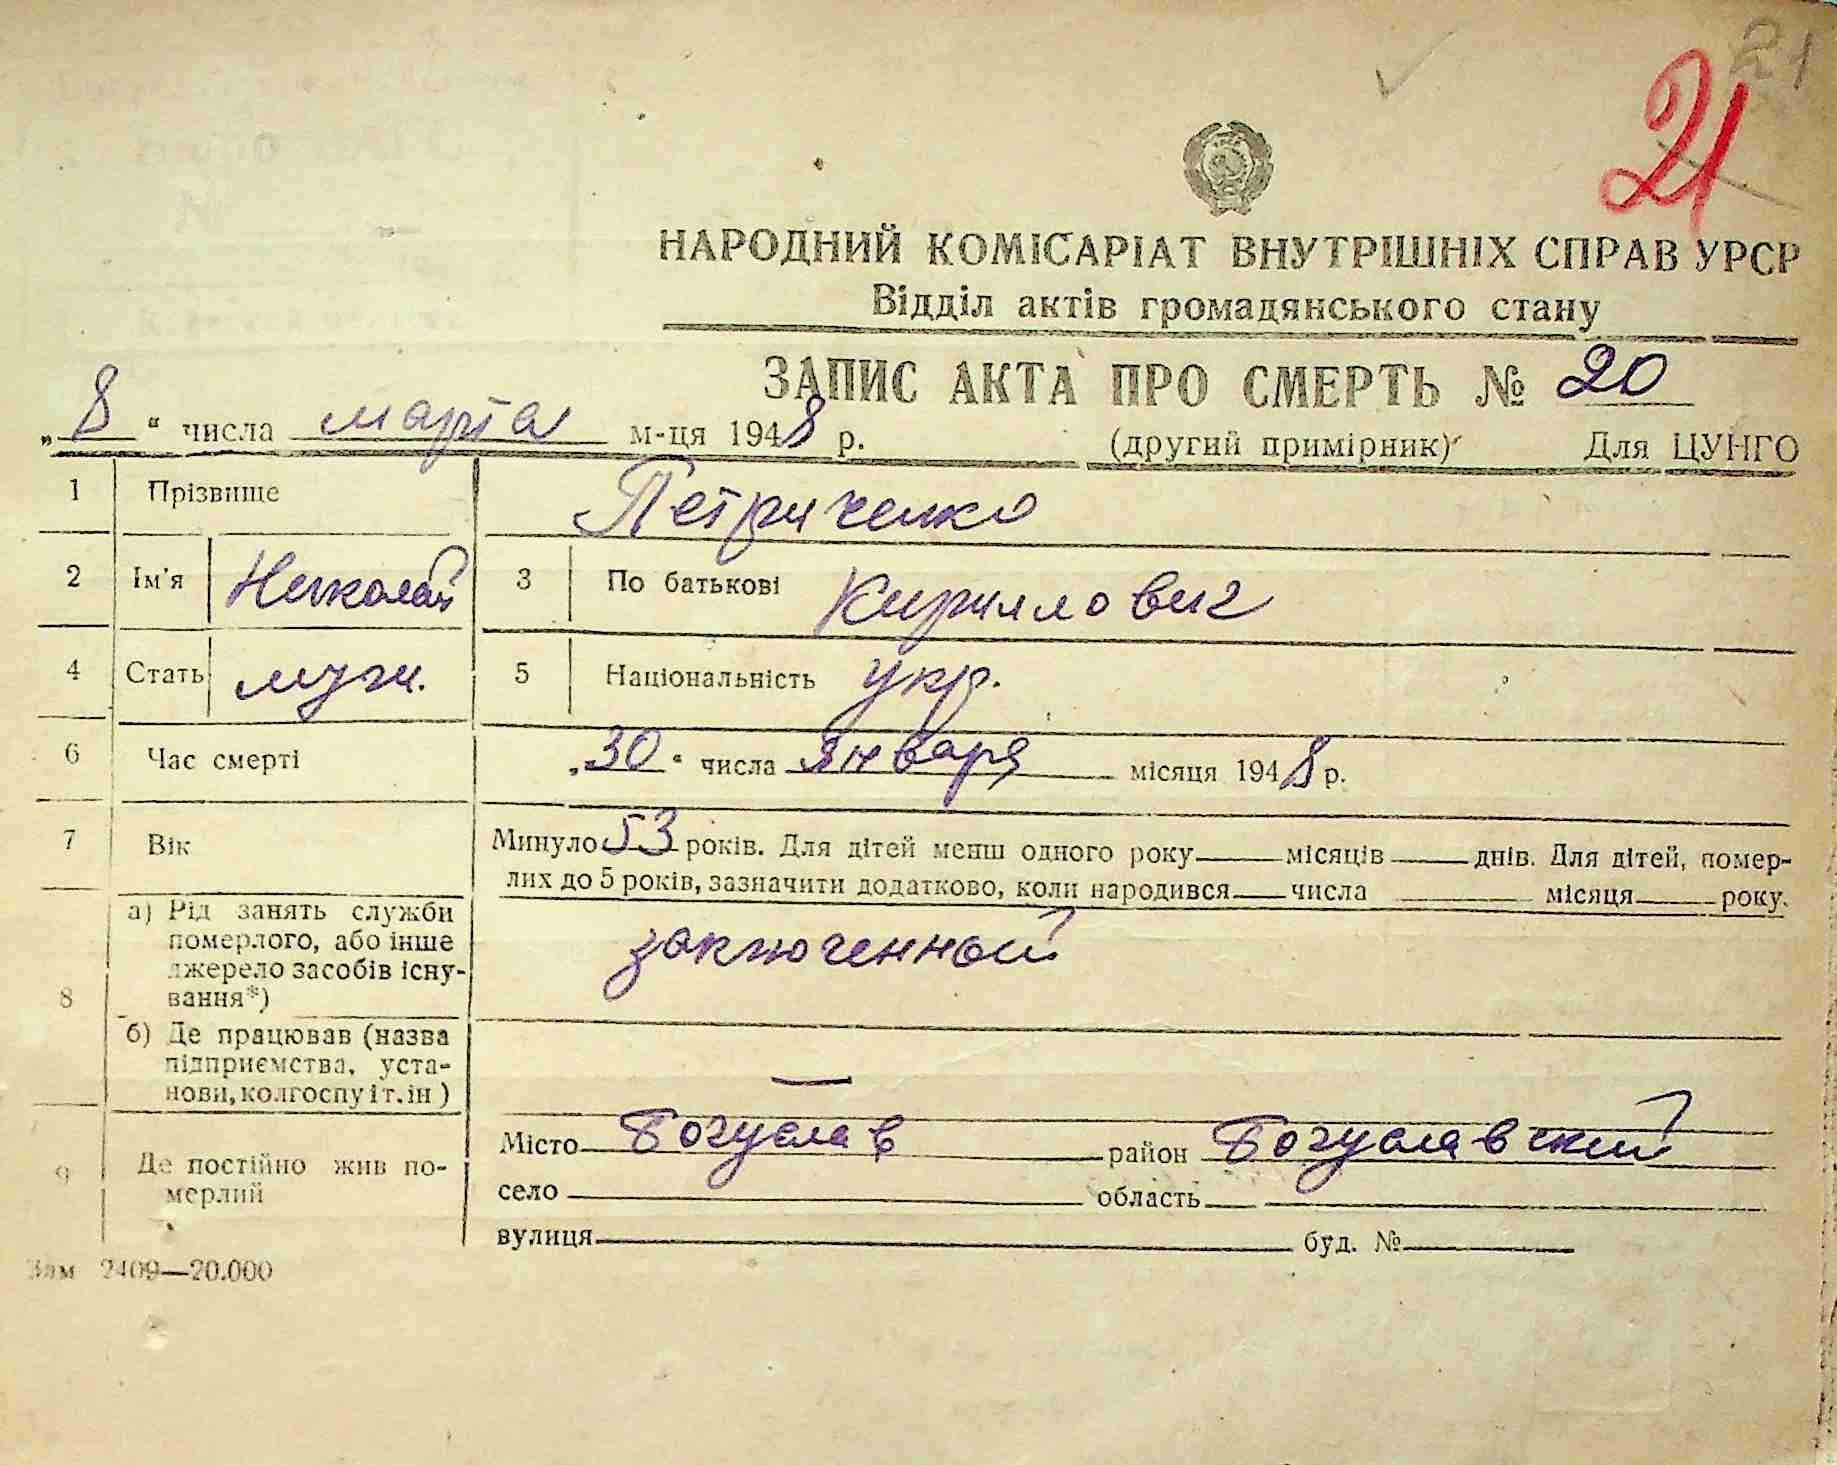 21
21
НАРОДНИЙ КОМІСАРІАТ ВНУТРІШНІХ СПРАВ УРСР
Відділ актів громадянського стану
ЗАПИС АКТА ПРО СМЕРТЬ № 20
„8“ числа марта м-ця 1948 р. (другий примірник) Для ЦУНГО
1 Прізвище Петриченко
2 Ім'я Николай 3 По батькові Кириллович
4 Стать муж. 5 Національність укр.
6 Час смерті „30“ числа января місяця 1948 р.
7 Вік Минуло 53 років. Для дітей менш одного року місяців днів. Для дітей, помер-
лих до 5 років, зазначити додатково, коли народився числа місяця року.
8 а) Рід занять служби
померлого, або інше
джерело засобів існу-
вання*)
заключенный
б) Де працював (назва
підприємства, уста-
нови, колгоспу і т. ін )
—
9 Де постійно жив по-
мерлий
Місто Богуслав район Богуславский
село область
вулиця буд. №
Зам 2409—20.000